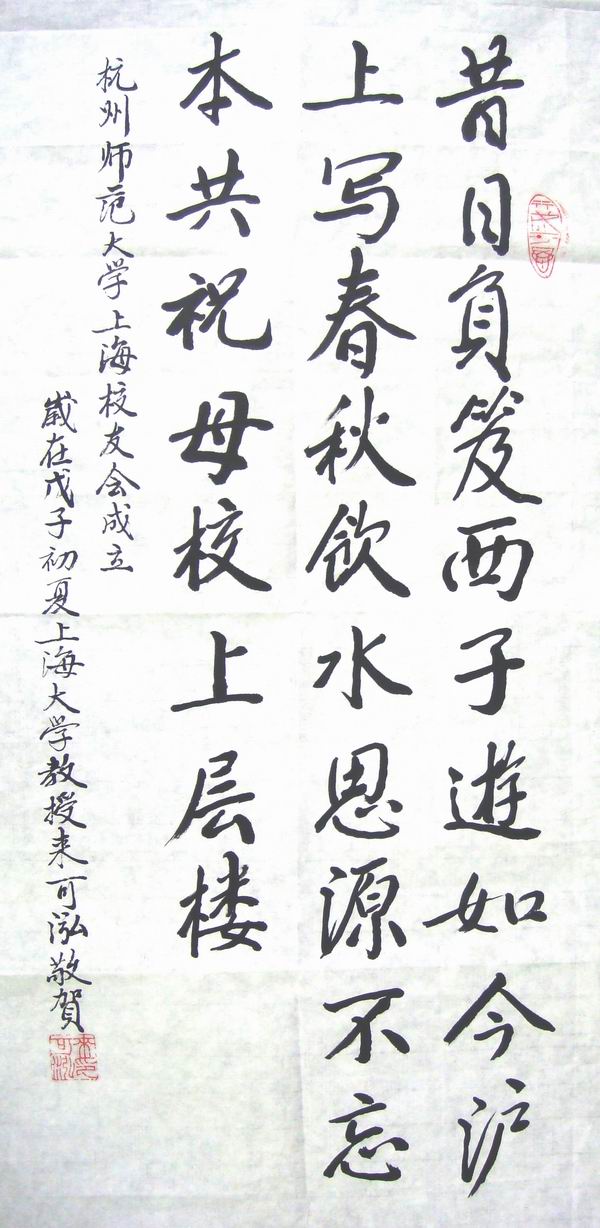 昔日负笈西子遊如今沪
上写春秋飲水思源不忘
本共祝母校上层楼
杭州师范大学上海校友会成立
岁在戊子初夏上海大学教授来可泓敬賀